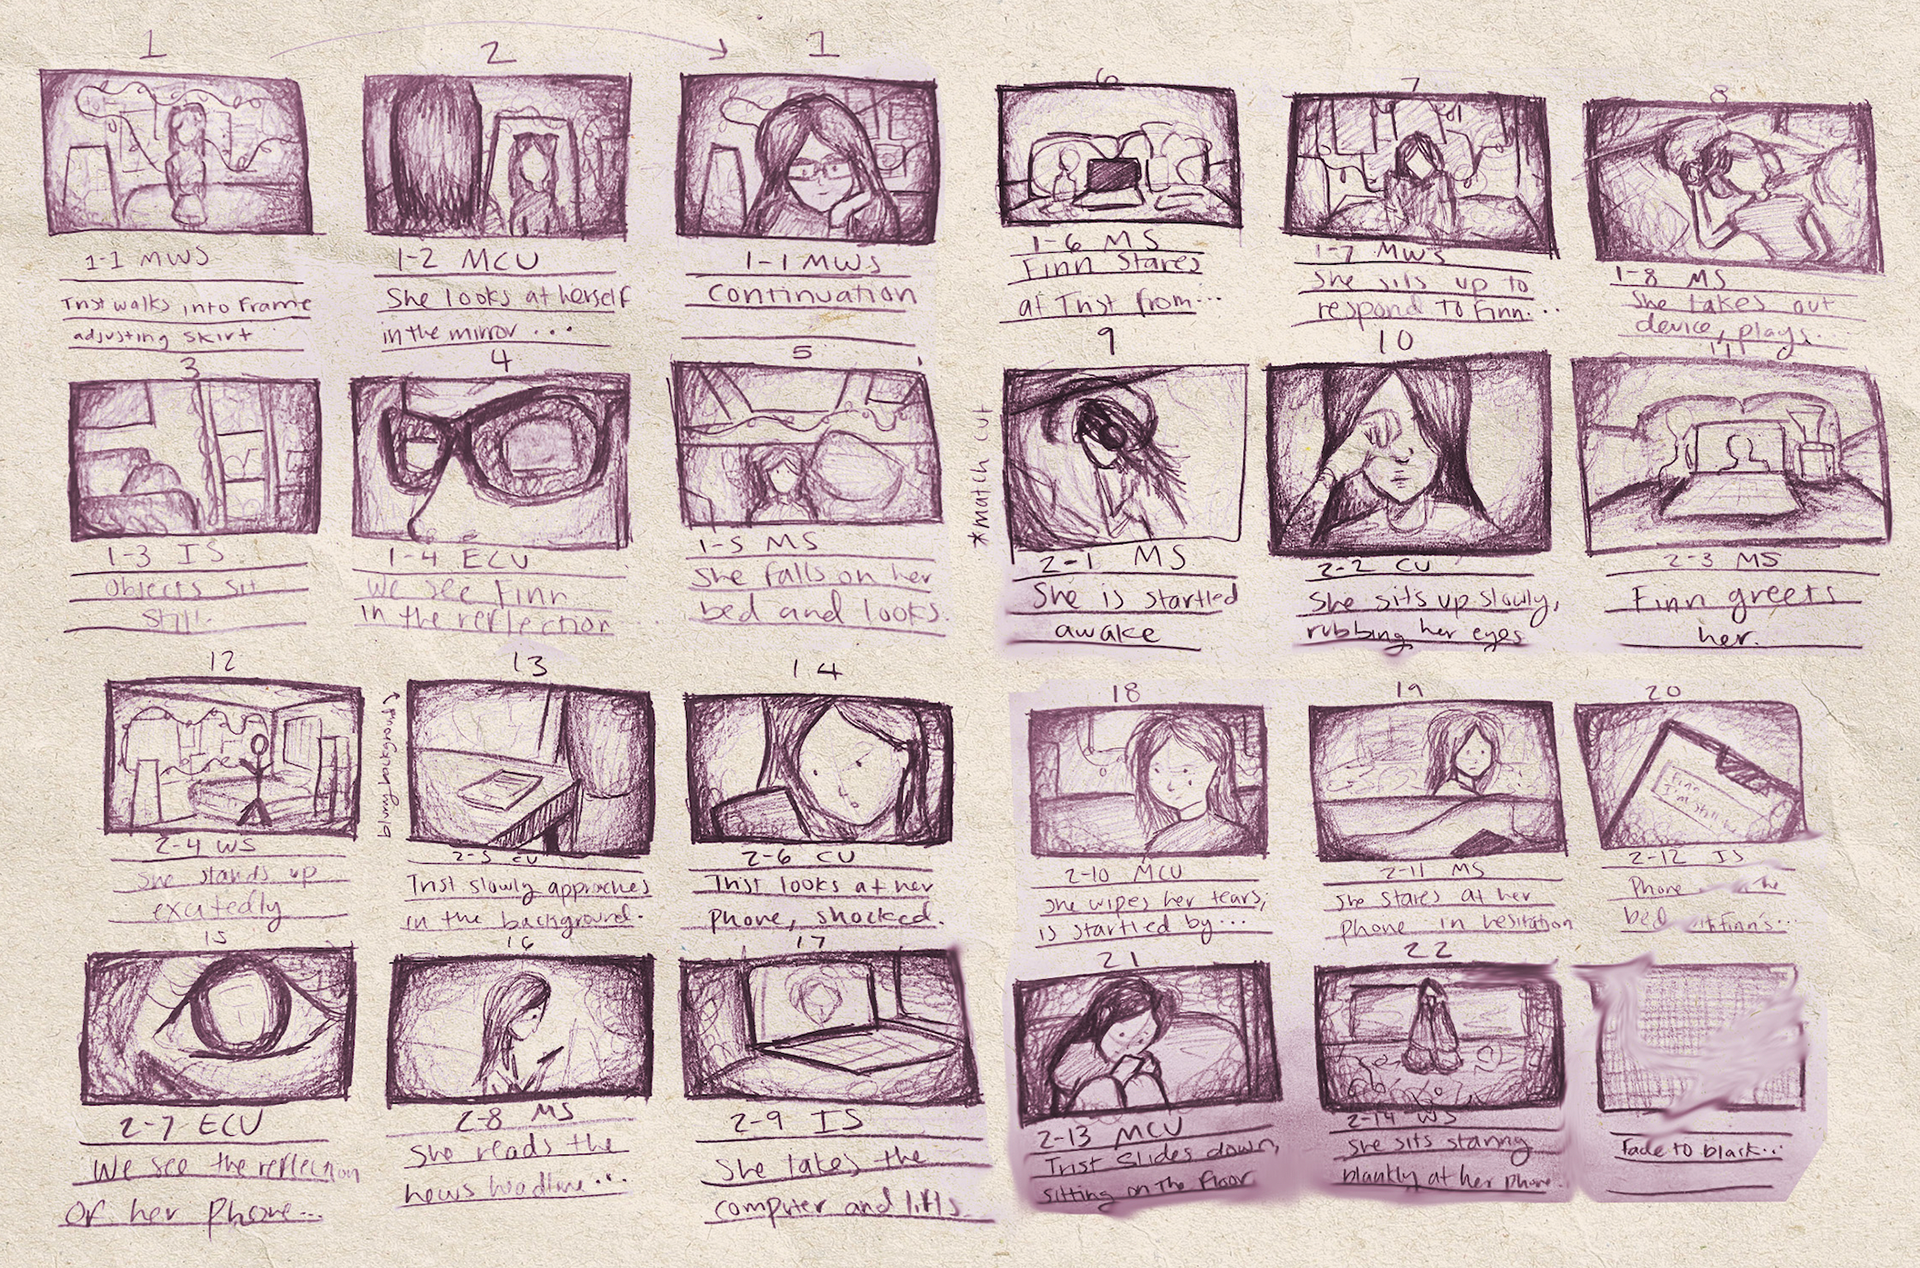 1
1-1 MWS
Trist walks into Frame
adjusting skirt
2
1-2 MCU
She looks at herself
in the mirror...
1
1-1 MWS
Continuation
3
1-3 IS
Objects sit
still.
4
1-4 ECU
We see Finn
in the reflection
5
1-5 MS
She falls on her
bed and looks.
6
1-6 MS
Finn stares
at Trist from...
7
1-7 MWS
She sits up to
respond to Finn...
8
1-8 MS
She takes out
device, plays.
*match cut
9
2-1 MS
She is startled
awake
10
2-2 CU
She sits up slowly,
rubbing her eyes
11
2-3 MS
Finn greets
her.
12
2-4 WS
She stands up
excitedly
blurry background
13
2-5 CU
Trist slowly approaches
in the background.
14
2-6 CU
Trist looks at her
phone, shocked.
15
2-7 ECU
We see the reflection
of her phone...
16
2-8 MS
She reads the
news headline...
17
2-9 IS
She takes the
computer and lifts.
18
2-10 MCU
She wipes her tears,
is startled by...
19
2-11 MS
She stares at her
phone in hesitation
20
Finn
I'm still
2-12 IS
Phone he
bed Finn's...
21
2-13 MCU
Trist slides down,
sitting on the floor
22
2-14 WS
She sits staring
blankly at her phone.
Fade to black...